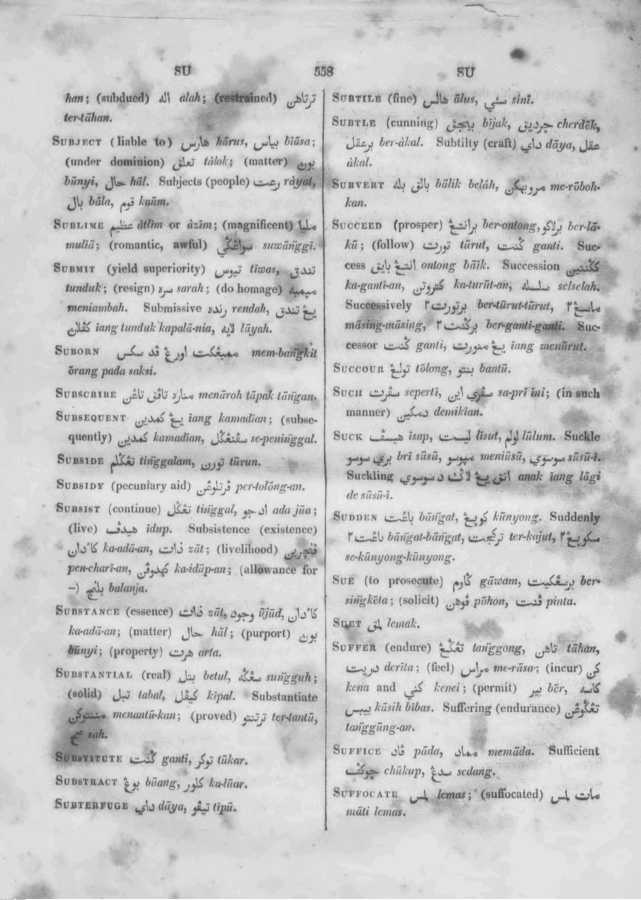 SU 558 SU
han; (subdued) اله alah; (restrained) ترتاهن
ter-tāhan.
SUBJECT (liable to) هارس hārus, بياس biāsa;
(under dominion) تعلق tālok; (matter) بوڽي
būnyi, حال hāl. Subjects (people) رعيت rāyat,
بال bāla, قوم kaūm.
SUBLIME عظيم ātlim or āzim; (magnificent) مليا
muliā; (romantic, awful) suwānggi.
SUBMIT (yield superiority) تيوس tiwas, تندق
tunduk; (resign) سره sarah; (do homage) ميمبه
meniambah. Submissive رنده rendah, يڠ تندق
iang tunduk kapalā-nia, لايه lāyah.
SUBORN ممبڠكت اورڠ قد سكس mem-bangkit
ōrang pada saksi.
SUBSCRIBE مناره تاڤق تاڠن menāroh tāpak tāngan.
SUBSEQUENT يڠ كمدين iang kamadīan; (subse-
quently) كمدين kamadīan, سڤنڠݢل se-peninggal.
SUBSIDE تڠݢلم tinggalam, تورن tūrun.
SUBSIDY (pecuniary aid) ڤرتولوڠن per-tolōng-an.
SUBSIST (continue) تڠݢل tinggal, اد جو ada jūa;
(live) هيدڤ idup. Subsistence (existence)
كادان ka-adā-an, ذات zāt; (livelihood)
pen-charī-an, كهيدوڤن ka-idūp-an; (allowance for
—) بلنج balanja.
SUBSTANCE (essence) ذات zāt, وجود ūjūd, كادان
ka-adā-an; (matter) حال hāl; (purport) بوڽي
būnyi; (property) هرت arta.
SUBSTANTIAL (real) بتل betul, سڠݢه sungguh;
(solid) تبل tabal, كيڤل kipal. Substantiate
menantū-kan; (proved) ترتنتو ter-tantū,
صح sah.
SUBSTITUTE ݢنت ganti, توكر tūkar.
SUBSTRACT بوڠ būang, كلور ka-lūar.
SUBTERFUGE داي dāya, تيڤو tipū.
SUBTILE (fine) هالس ālus, سني sīni.
SUBTLE (cunning) بيجق bījak, چرديق cherdēk,
برعقل ber-ākal. Subtilty (craft) داي dāya, عقل
ākal.
SUBVERT بالق بله bālik belāh, مروبهكن me-rōboh-
kan.
SUCCEED (prosper) برانتڠ ber-ontong, برلاكو ber-lā-
kū; (follow) تورت tūrut, ݢنت ganti. Suc-
cess انتڠ بايق ontong bāik. Succession
ka-ganti-an, ka-turūt-an, سلسله selselah.
Successively برتورت٢ ber-tūrut-tūrut, ماسڠ٢
māsing-māsing, برݢنت٢ ber-ganti-ganti. Suc-
cessor ݢنت ganti, يڠ منورت iang menūrut.
SUCCOUR تولڠ tōlong, بنتو bantū.
SUCH سڤرت seperti, سڤري اين sa-prī īni; (in such
manner) دمكين demikīan.
SUCK هيسڤ isap, ليست lisut, لولم lūlum. Suckle
بري سوسو bri sūsū, ميوسو meniūsū, سوسوي sūsū-i.
Suckling انق يڠ لاݢ د سوسوي anak iang lāgi
de sūsū-i.
SUDDEN باڠت bāngat, كوڽڠ kūnyong. Suddenly
باڠت٢ bāngat-bāngat, تركجت ter-kajut,
se-kūnyong-kūnyong.
SUE (to prosecute) ݢاوم gāwam, برسڠكيت ber-
singkēta; (solicit) ڤوهن pūhon, ڤنت pinta.
SUET لمق lemak.
SUFFER (endure) تڠݢڠ tanggong, تاهن tāhan,
دريت derīta; (feel) مراس me-rāsa; (incur) كن
kena and كني kenei; (permit) بير bēr, كاسه
بيبس kāsih bibas. Suffering (endurance) تڠݢوڠن
tanggūng-an.
SUFFICE ڤاد pāda, ممادا memāda. Sufficient
چوكڤ chūkup, سدڠ sedang.
SUFFOCATE لمس lemas; (suffocated) مات لمس
māti lemas.